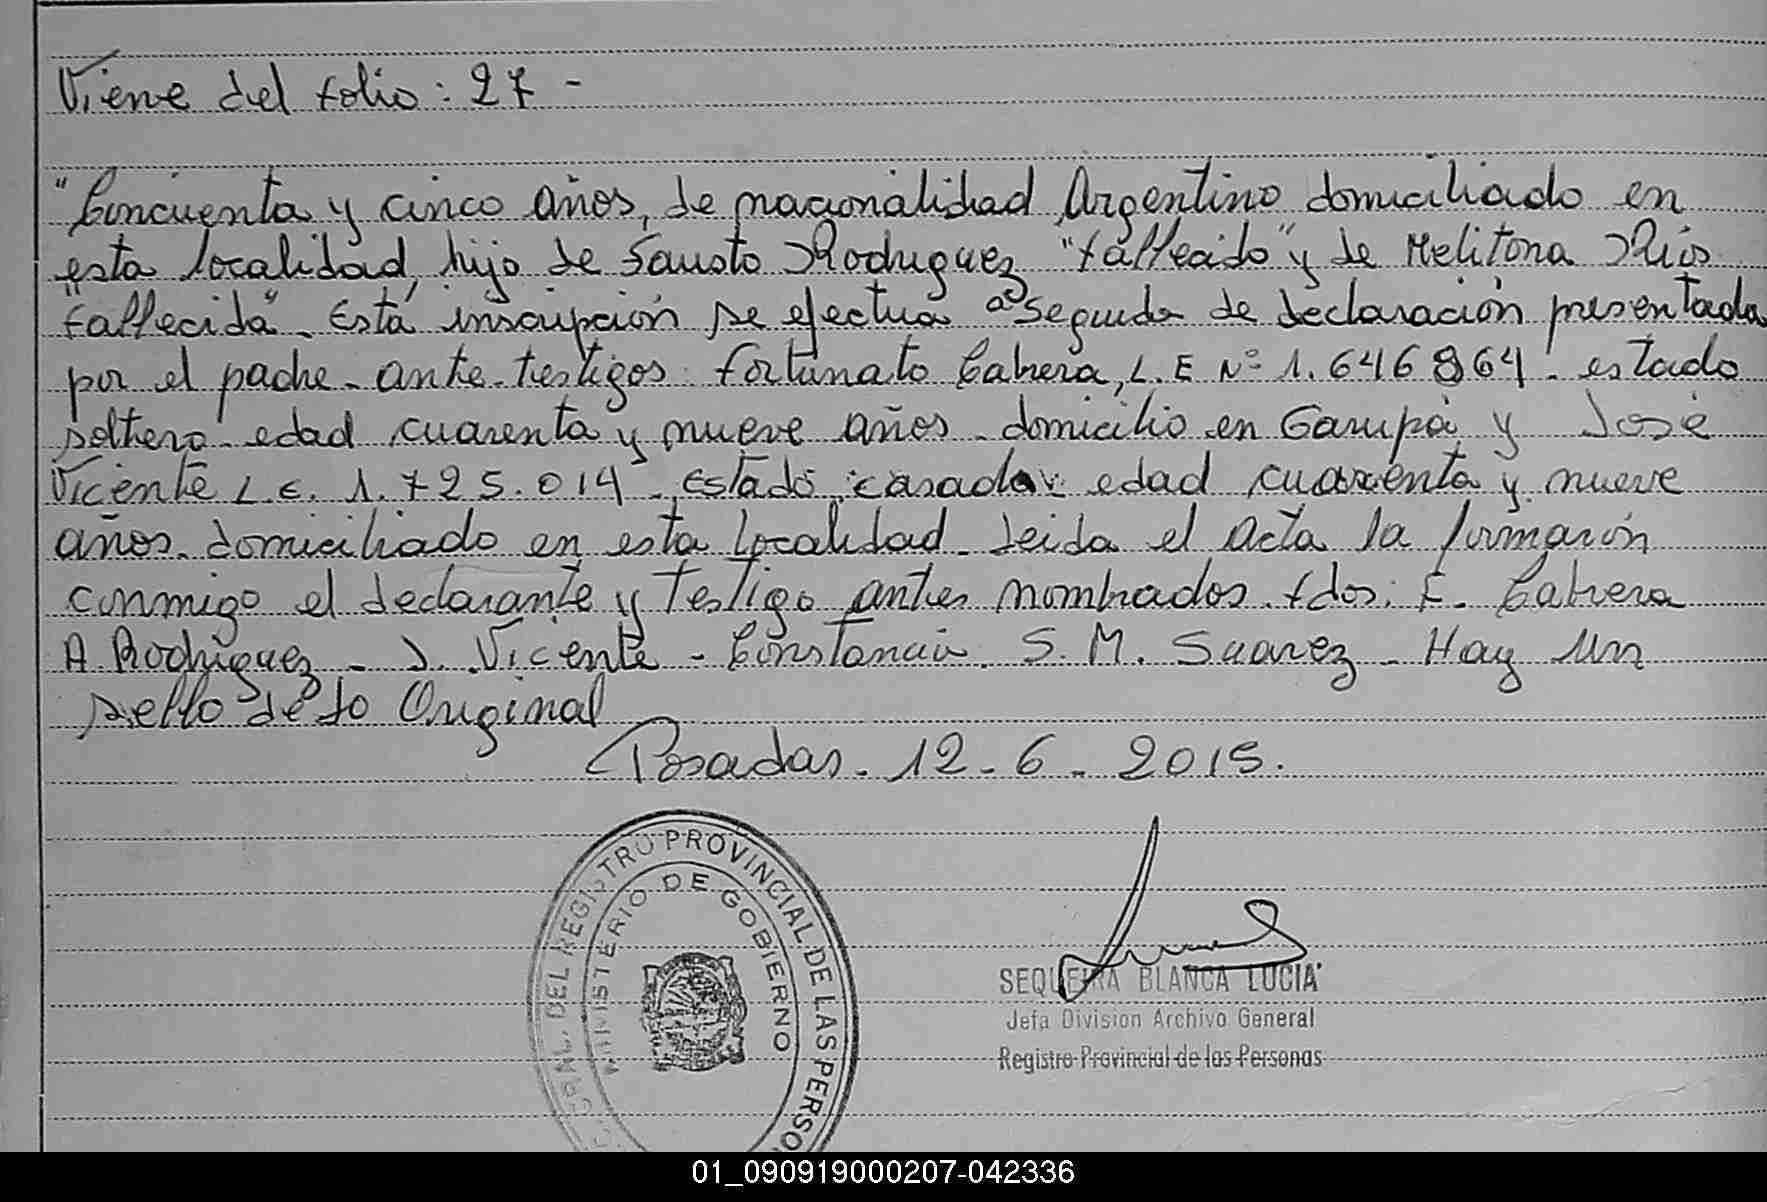 Viene del folio: 27 -
"Cincuenta y cinco años, de nacionalidad Argentino domiciliado en
esta localidad, hijo de Fausto Rodriguez "fallecido" y de Melitona Rios
"fallecida". Está inscripción se efectua a segunda de declaración presentada
por el padre - ante testigos: Fortunato Cabrera, L.E Nº 1.646864 - estado
soltero - edad cuarenta y nueve años - domicilio en Garupá y José
Vicente L.E. 1.725.014 - Estado casado edad cuarenta y nueve
años - domiciliado en esta localidad - Leida el Acta la firmarón
conmigo el declarante y Testigo antes nombrados. fdos: F. Cabrera
A. Rodriguez - J. Vicente - Constancia. S. M. Suarez - Hay un
sello de lo Original
Posadas - 12 - 6 - 2015.
GRAL. DEL REGISTRO PROVINCIAL DE LAS PERSO
MINISTERIO DE GOBIERNO
SEQUEIRA BLANCA LUCIA
Jefa Division Archivo General
Registro Provincial de las Personas
01_090919000207-042336